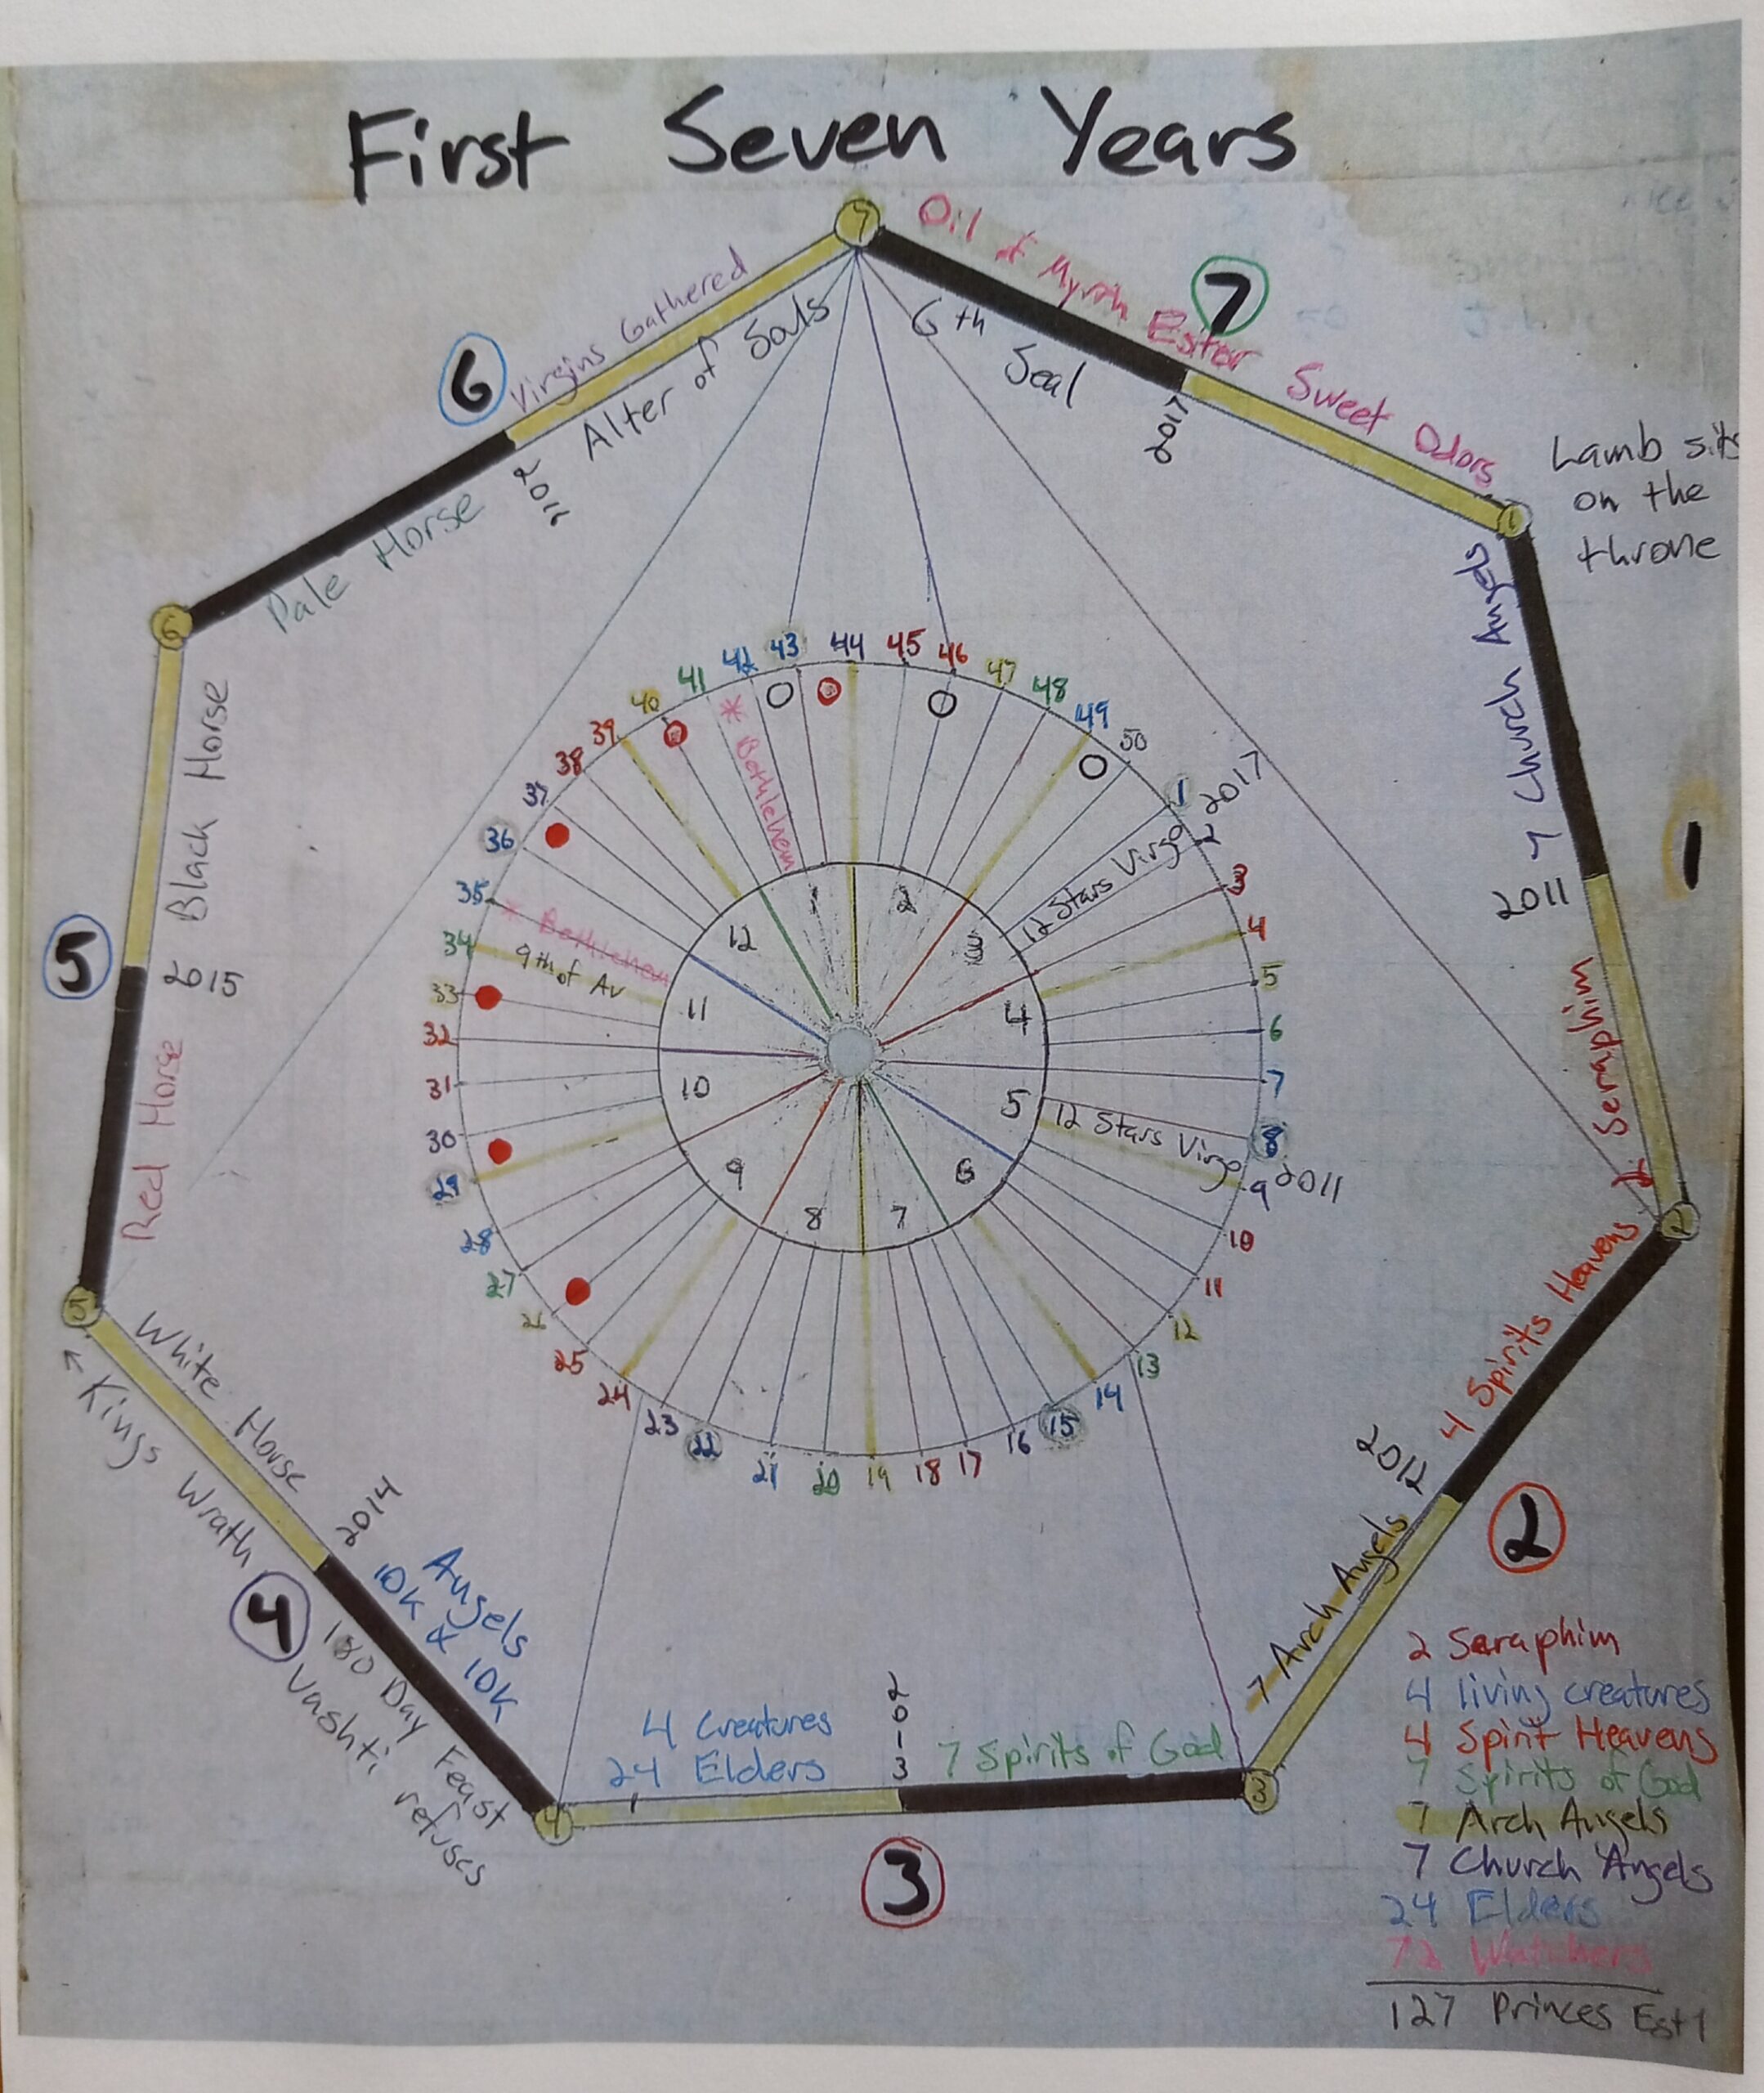 First Seven Years
7
Oil of Myrrh Ester Sweet Odors
7
6th Seal
2017
Lamb sits
on the
throne
1
7 Church Angels
1
2011
2 Seraphim
2
4 Spirits Heavens
2012
2
7 Arch Angels
3
7 Spirits of God
2013
3
4 Creatures
24 Elders
4
Angels
10K x 10K
180 Day Feast
Vashti refuses
4
2014
White Horse
Kings Wrath
5
Red Horse
5
2015
Black Horse
6
Pale Horse
2016
6
Virgins Gathered
Alter of Souls
1 2017
2
3
4
5
6
7
8
9 2011
10
11
12
13
14
15
16
17
18
19
20
21
22
23
24
25
26
27
28
29
30
31
32
33
34
35
36
37
38
39
40
41
42
43
44
45
46
47
48
49
50
12 Stars Virgo
12 Stars Virgo
9th of Av
* Bethlehem
* Bethlehem
1
2
3
4
5
6
7
8
9
10
11
12
2 Seraphim
4 living creatures
4 Spirit Heavens
7 Spirits of God
7 Arch Angels
7 Church Angels
24 Elders
72 Watchers
127 Princes Est 1